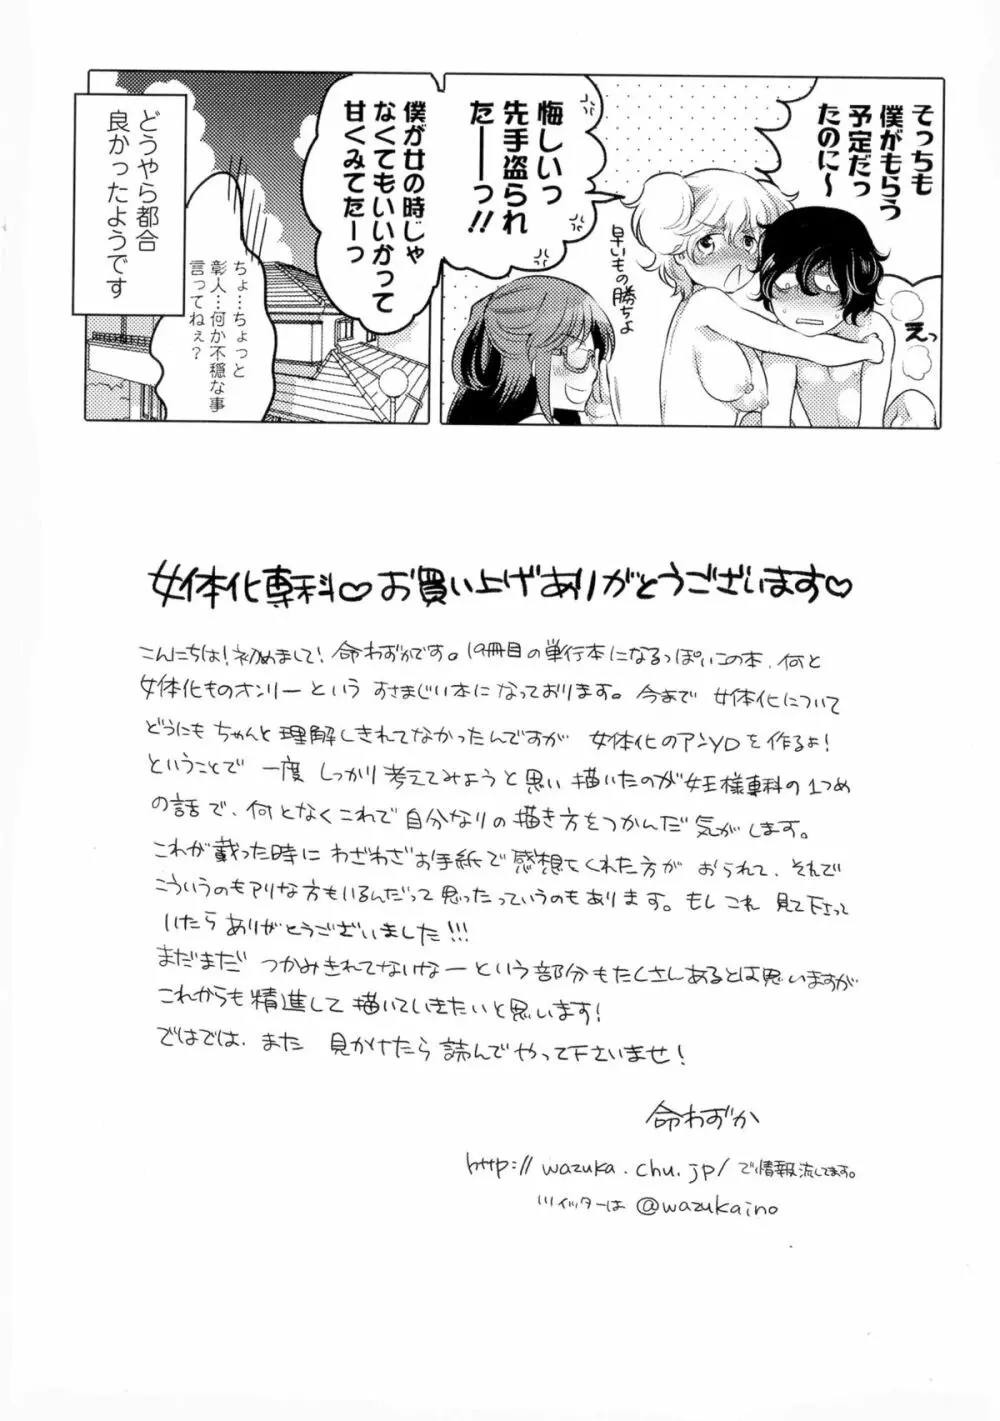 そっちも
僕がもらう
予定だっ
たのに〜
えっ
早いもの勝ちよ
悔しいっ
先手盗られ
たーーっ!!
僕が女の時じゃ
なくてもいいかって
甘くみてたーっ
ちょ…ちょっと
彰人…何か不穏な事
言ってねぇ?
どうやら都合
良かったようです
女体化専科♡お買い上げありがとうございます♡
こんにちは!初めまして!命わずかです。19冊目の単行本になるっぽいこの本、何と
女体化ものオンリーという すさまじい本になっております。今まで 女体化について
どうにも ちゃんと理解しきれてなかったんですが 女体化のアンソロを作るよ!
ということで 一度 しっかり考えてみようと思い 描いたのが女王様専科の1つめ
の話で、何となくこれで自分なりの描き方をつかんだ気がします。
これが載った時に わざわざお手紙で感想をくれた方が おられて、それで
こういうのもアリな方もいるんだって思ったっていうのもあります。もし これ 見て下さって
いたら ありがとうございました!!!
まだまだ つかみきれてないなーという部分もたくさんあるとは思いますが
これからも精進して描いていきたいと思います!
ではでは、また 見かけたら 読んでやって下さいませ!
命わずか
http://wazuka.chu.jp/で情報流してます。
ツイッターは @wazukaino